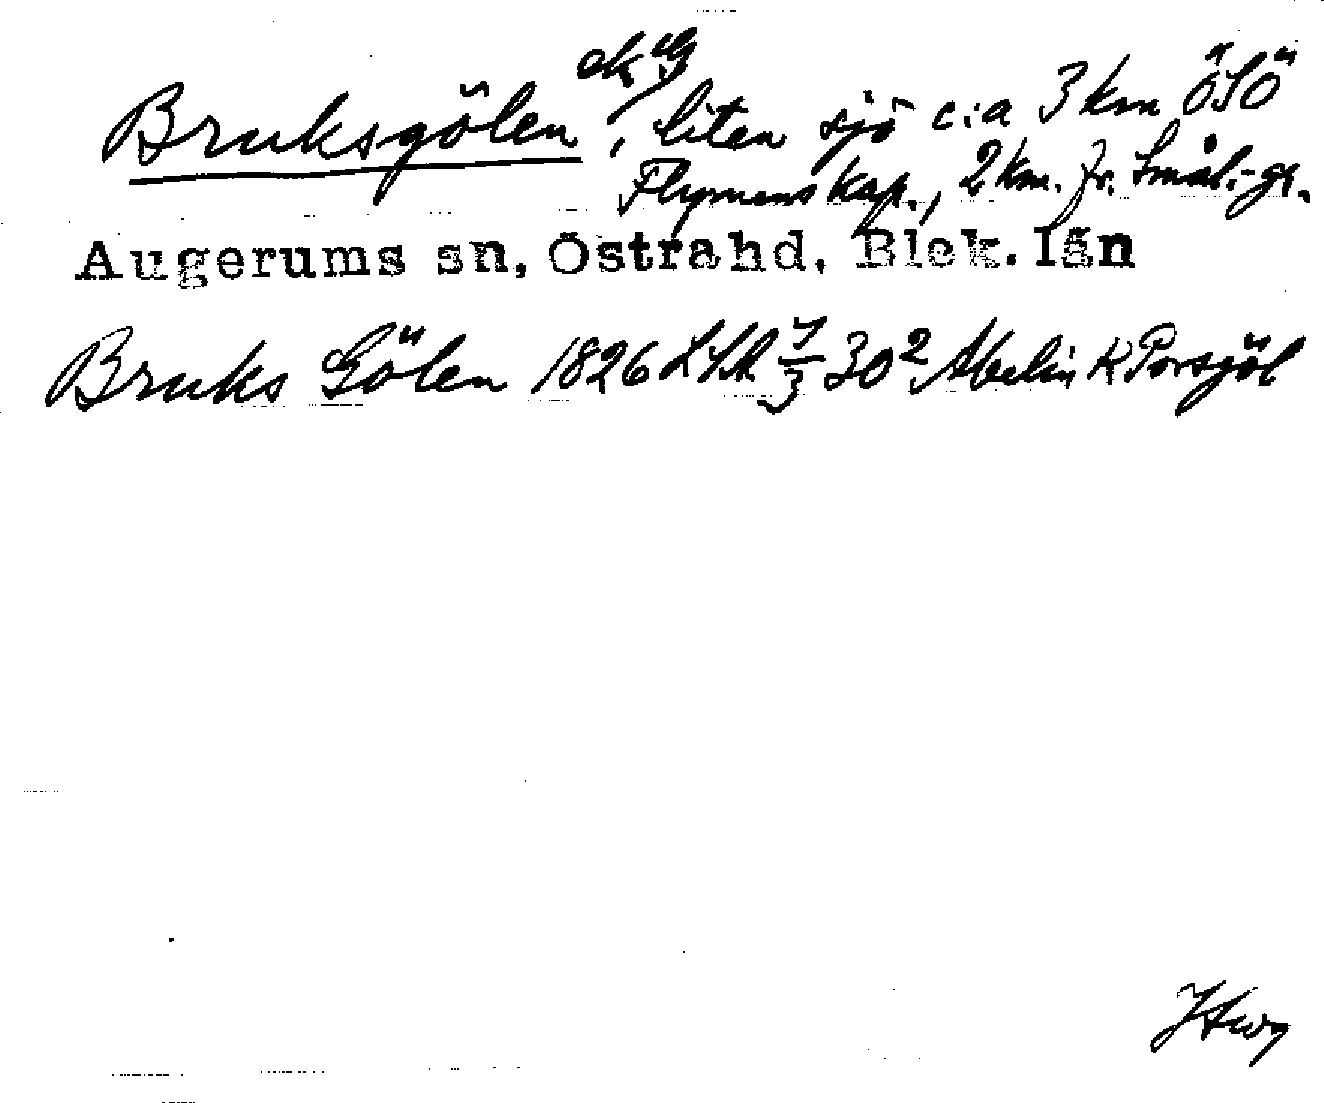 Bruksgölen ekG, liten sjö c:a 3 km ÖSÖ
Flymens kap., 2 km. fr. Smål.-gr.
Augerums sn, Östra hd, Blek. län
Bruks Gölen 1826 LSA 30² Abelin K Porsjöl